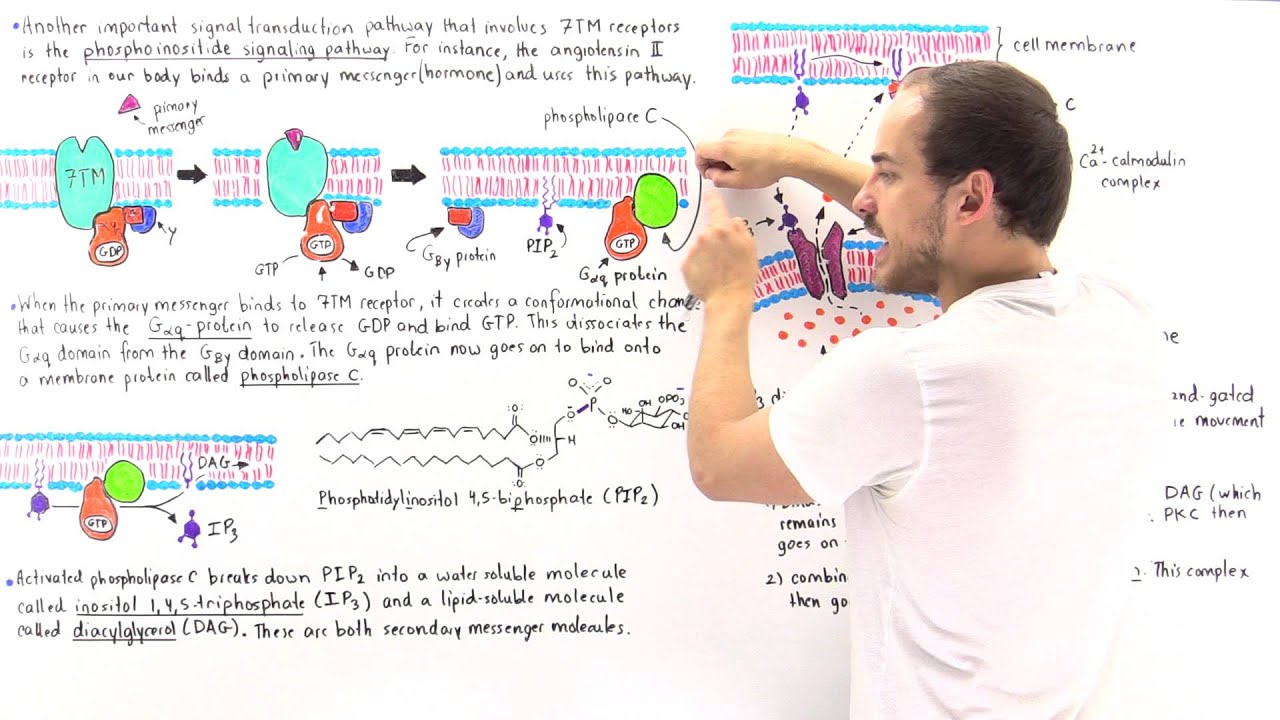 •Another important signal transduction pathway that involves 7TM receptors
is the phosphoinositide signaling pathway. For instance, the angiotensin II
receptor in our body binds a primary messenger (hormone) and uses this pathway.
primary
messenger
7TM
GDP
γ
GTP
GTP
GDP
Gβγ protein
PIP2
phospholipase C
GTP
Gαq protein
•When the primary messenger binds to 7TM receptor, it creates a conformational
that causes the Gαq-protein to release GDP and bind GTP. This dissociates the
Gαq domain from the Gβγ domain. The Gαq protein now goes on to bind onto
a membrane protein called phospholipase C.
GTP
DAG
IP3
O
O
O
O
H
O
O
P
O
O
O
HO
OH
OPO3
OH
Phosphotidylinositol 4,5-biphosphate (PIP2)
•Activated phospholipase C breaks down PIP2 into a water soluble molecule
called inositol 1,4,5-triphosphate (IP3) and a lipid-soluble molecule
called diacylglycerol (DAG). These are both secondary messenger molecules.
cell membrane
C
Ca2+-calmodulin
complex
movement
remains
goes on
DAG (which
PKC then
2)
then
This complex